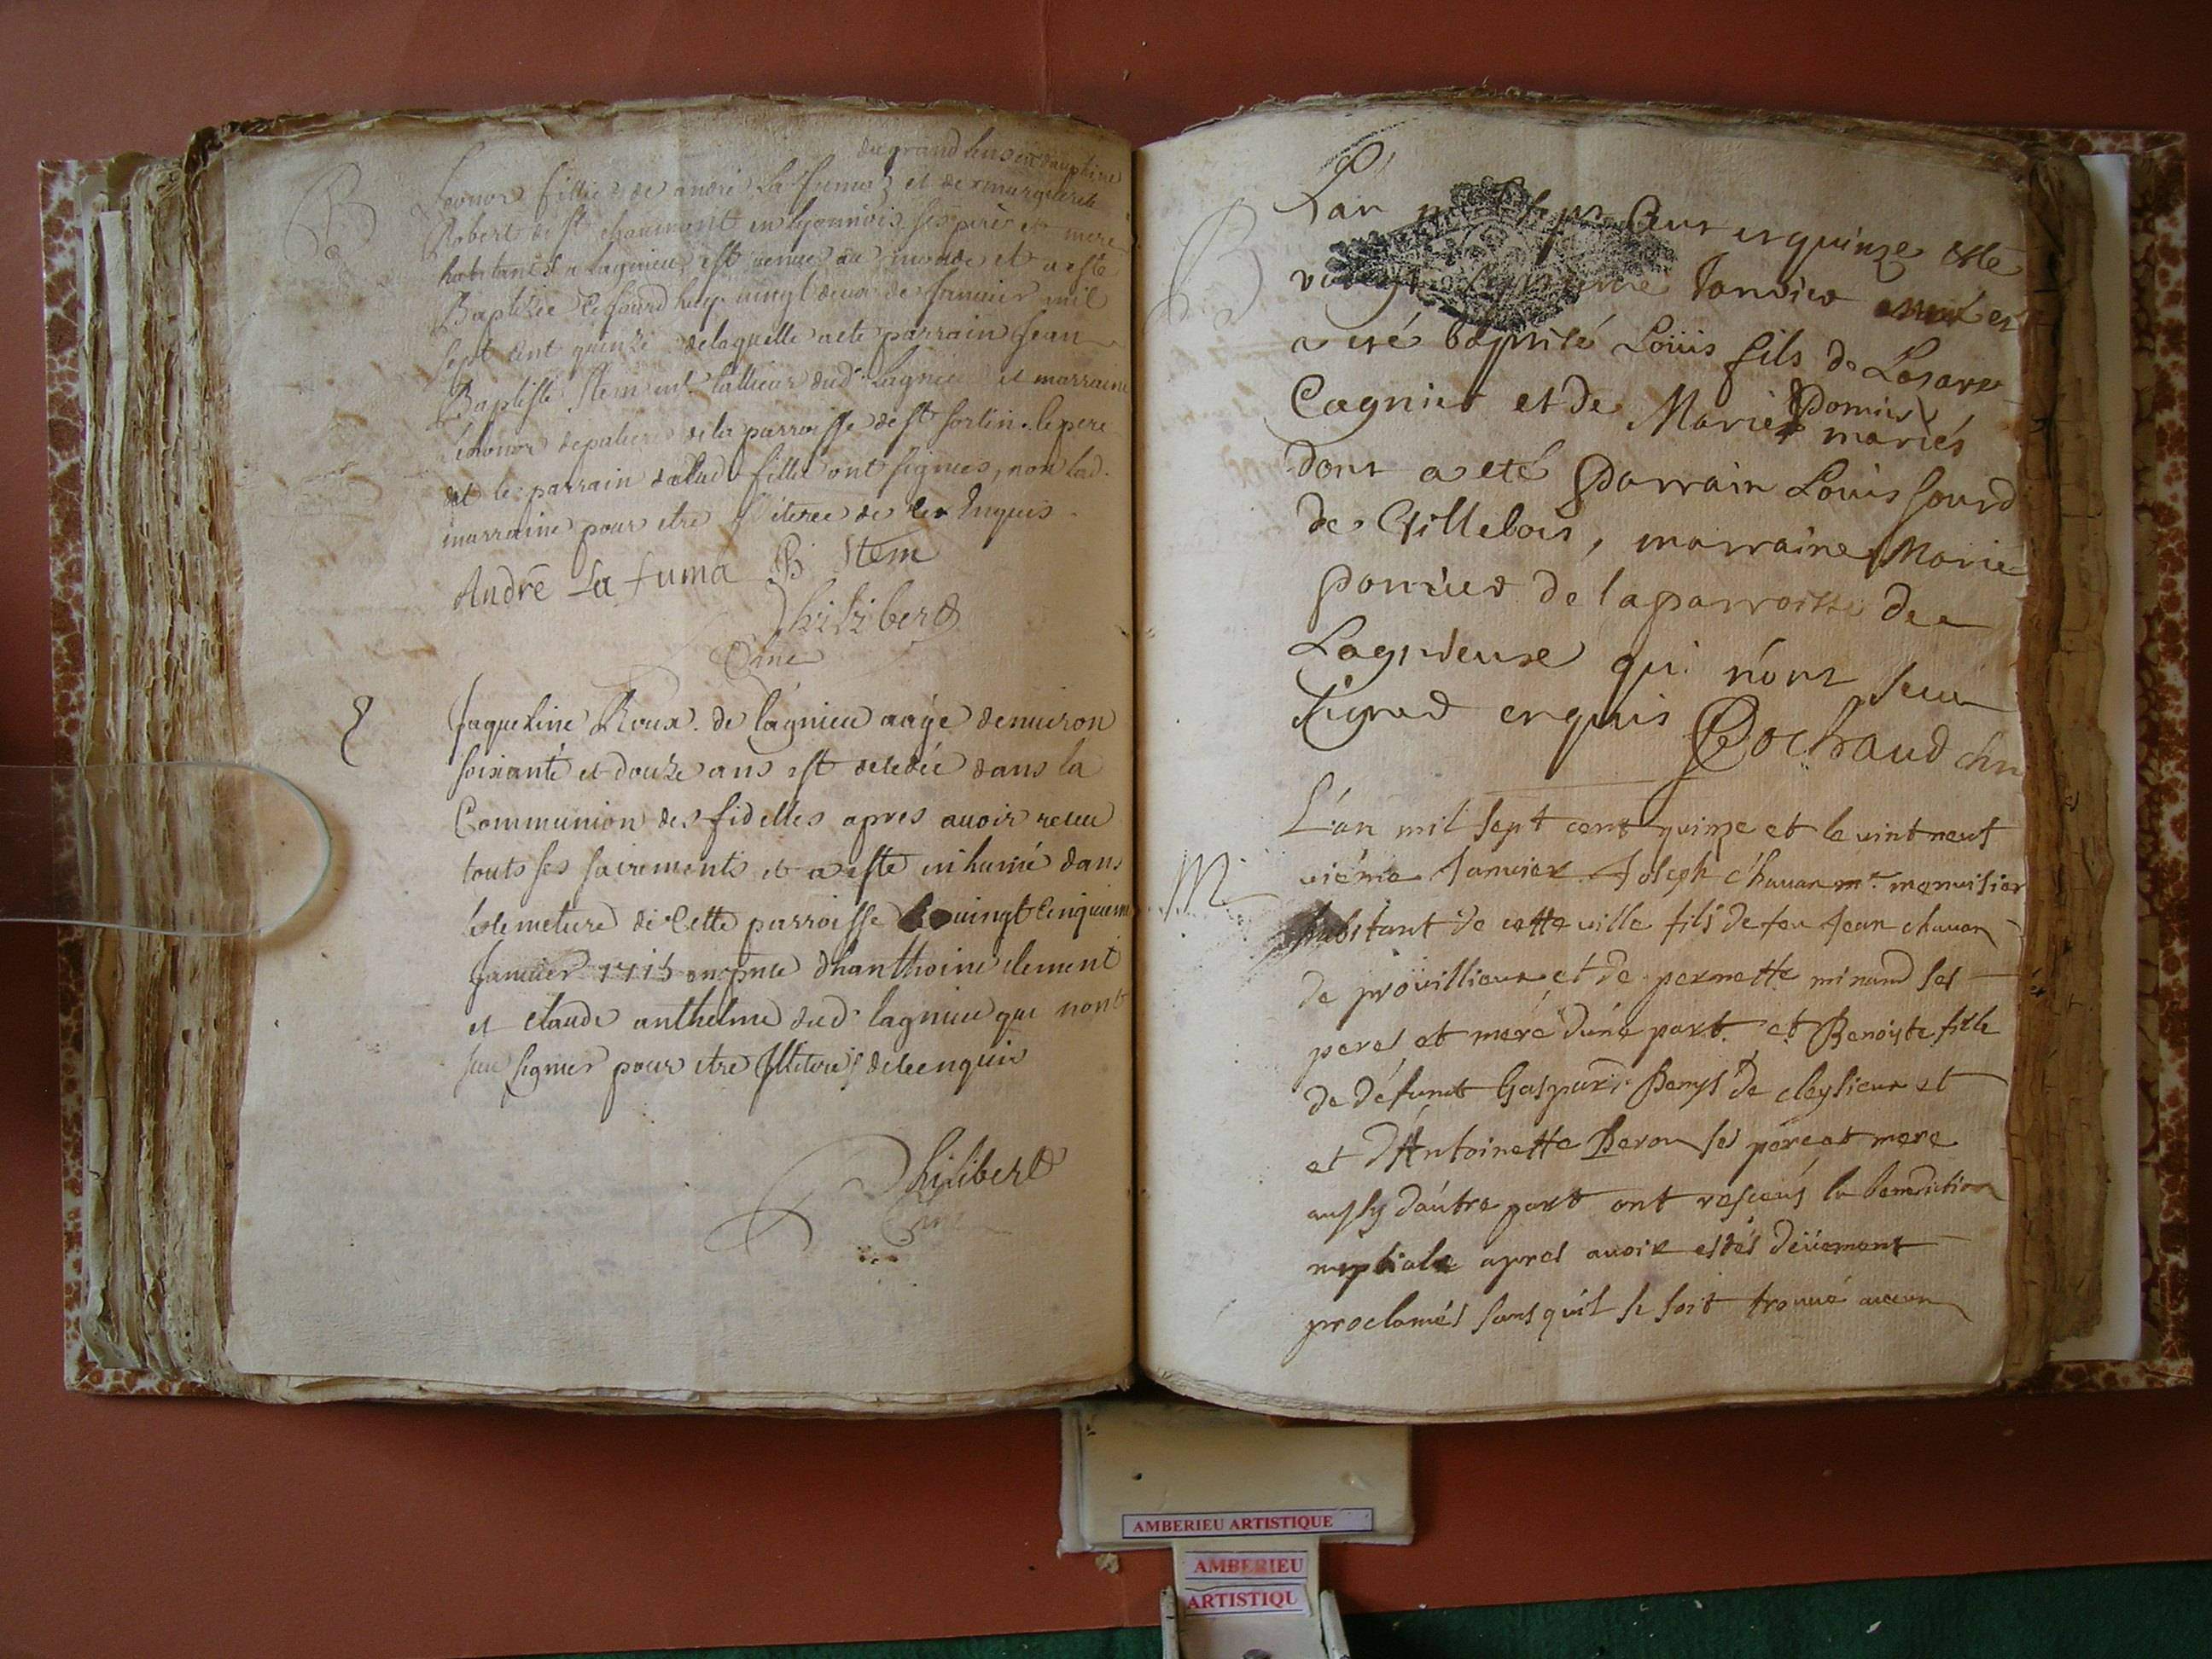 B
du grand
Leonor fillie de andré La fuma et de marguerite
Robert de st chaumont en lyonnois ses pere et mere
habitants a Lagnieu est venue au monde et a esté
Baptisée ce jourd huy vingt deux de januier mil
sept cent quinze delaquelle a ete parrain Jean
Baptiste Stem mt. tallieur dud. Lagnieu et marraine
Leonor de la parroisse de st sorlin. le pere
et le parrain de lad. fille ont signes, non lad.
marraine pour etre de ce Enquis.
André La fuma JB Stem
Philibert
Cure
Jaqueline Roux. de lagnieu aagé denuiron
soixante et douze ans est decedée dans la
Communion des fidelles apres auoir receu
touts ses sacrements et a esté inhumé dans
le semeture de cette parroisse le uingt Cinquiem
Januier 1715 en pnce dhanthoine clement
et claude anthelme dud. lagnieu qui nont
sceu signer pour etre de ce enquis
Philibert
Cure
B
Lan mil sept Cens et quinze et le
vingt Janvier
a eté baptisé Loüis fils de Lasare
Cagnies et de Marie mariés
dont a eté Parrain Louis sourd
de Gillebois, marraine Marie
de la parroisse de
Lagnieux qui n'ont sceu
signer enquis Cochaud
M
L'an mil sept cent quinze et le uint neuf
uiéme Januier Joseph chauan mr. menuisier
habitant de cette uille fils de feu Jean chauan
de proüillieux et de pernette minand ses
peres et mere d'une part. et Benoiste fille
de défunt Gaspard de cleysieux et
et d'Antoinette ses pere et mere
aussy d'autre part ont resceus la benediction
nuptiale apres auoir estés deüement
proclamés sans qu'il se soit trouué aucun
AMBERIEU ARTISTIQUE
AMBERIEU
ARTISTIQU